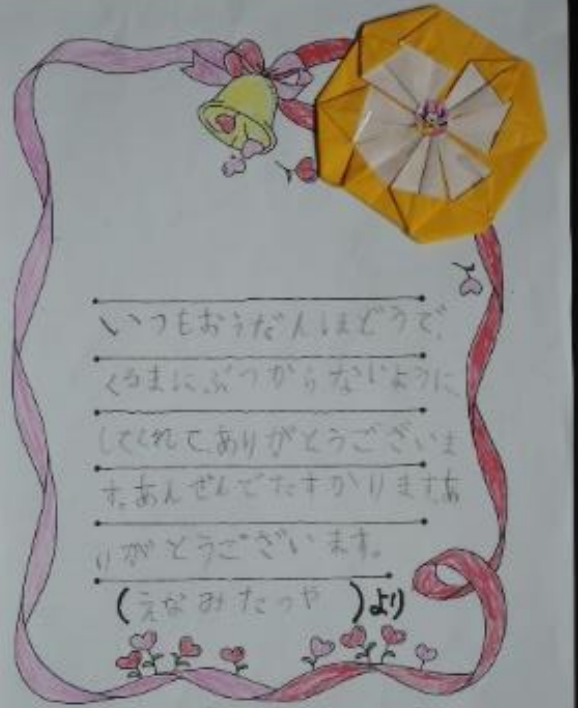 いつもおうだんほどうで、
くるまにぶつからないように、
してくれて、ありがとうございま
す。あんぜんでたすかります。あ
りがとうございます。
(えなみたつや)より